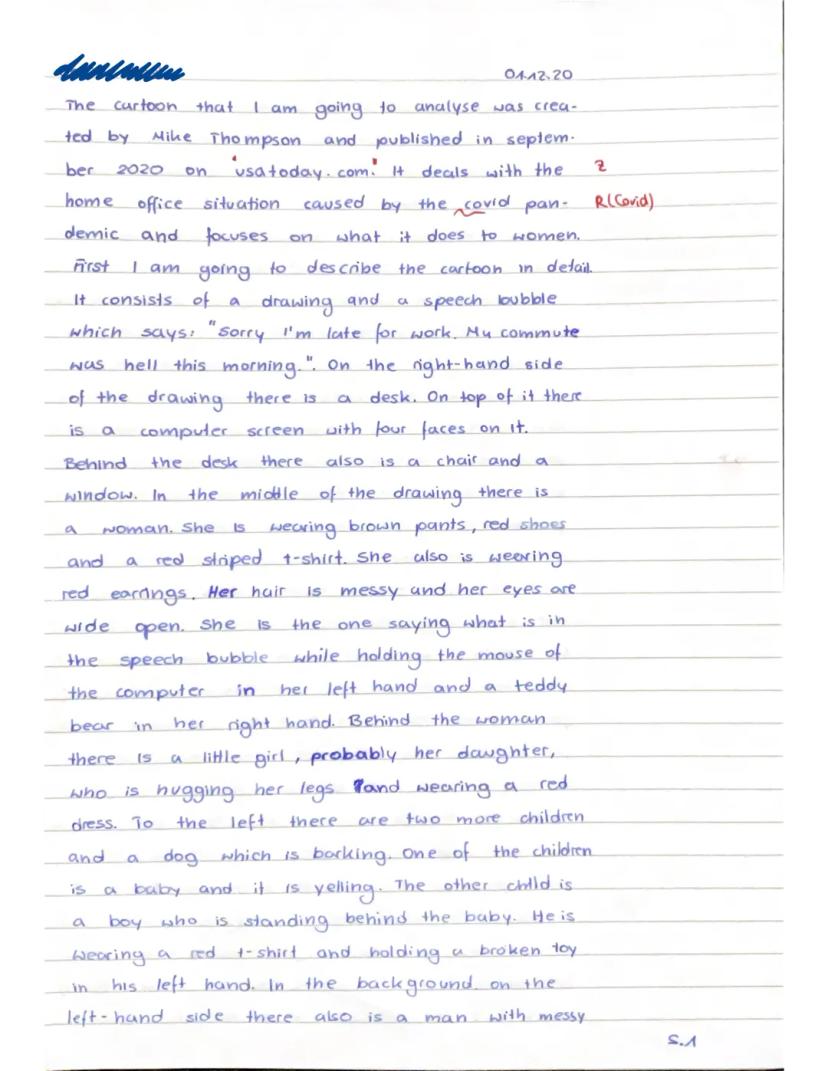 01.12.20
The cartoon that I am going to analyse was crea-
ted by Mike Thompson and published in septem-
ber 2020 on 'usatoday.com.' It deals with the Z
home office situation caused by the covid pan- R(Covid)
demic and focuses on what it does to women.
First I am going to describe the cartoon in detail.
It consists of a drawing and a speech bubble
which says: "Sorry I'm late for work. My commute
was hell this morning.". On the right-hand side
of the drawing there is a desk. On top of it there
is a computer screen with four faces on it.
Behind the desk there also is a chair and a
window. In the middle of the drawing there is
a woman. She is wearing brown pants, red shoes
and a red striped t-shirt. She also is weering
red earrings. Her hair is messy and her eyes are
wide open. She is the one saying what is in
the speech bubble while holding the mouse of
the computer in her left hand and a teddy
bear in her right hand. Behind the woman
there is a little girl, probably her daughter,
who is hugging her legs and wearing a red
dress. To the left there are two more children
and a dog which is barking. One of the children
is a baby and it is yelling. The other child is
a boy who is standing behind the baby. He is
wearing a red t-shirt and holding a broken toy
in his left hand. In the background on the
left-hand side there also is a man with messy
S.1